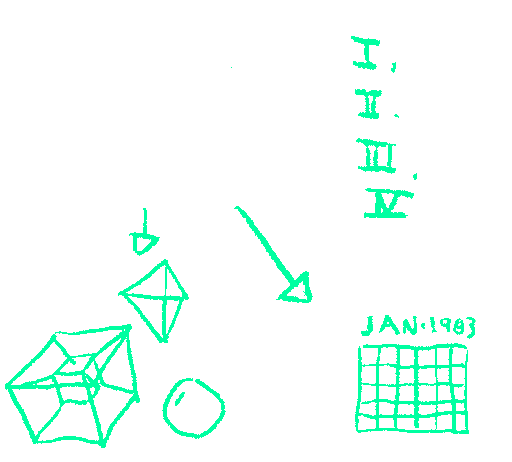 I.
II.
III.
IV
JAN.1983